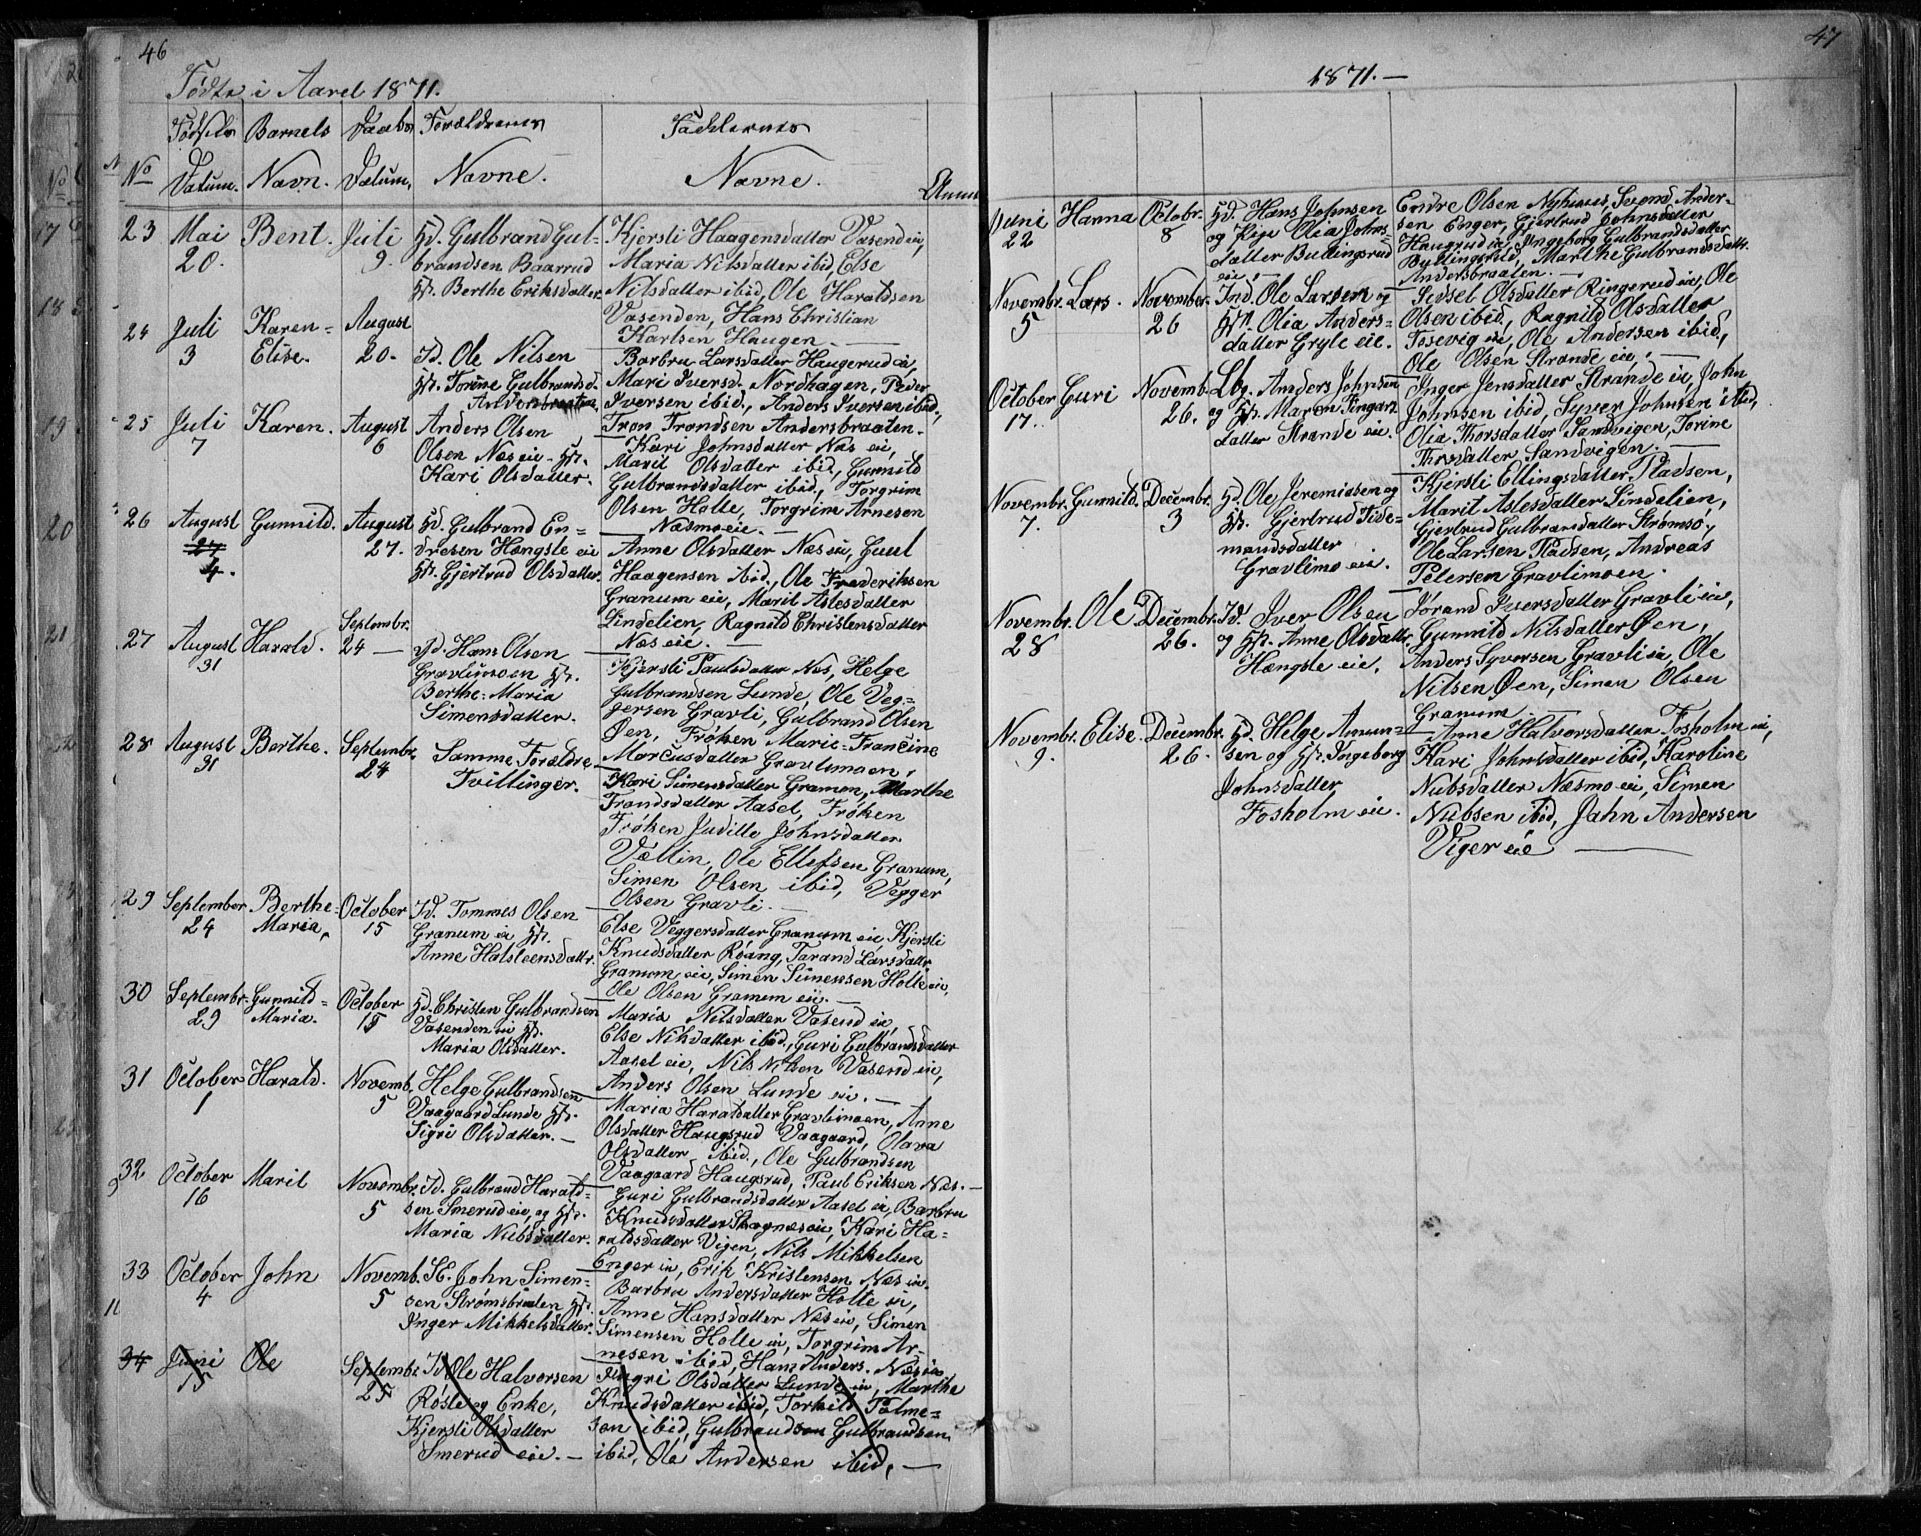 46
Fødte i Aaret 1871.
Fødsels Barnets Daabs Forældrenes Faddernes
No Datum. Navn. Datum. Navne. Navne.
23 Mai 20. Bent. Juli 9.
Gulbrand Gul-
brandsen Baarrud
Berthe Eriksdatter
Kjersti Haagensdatter Vasend eie,
Maria Nilsdatter ibid, Else
Nilsdatter ibid, Ole Haraldsen
Vasenden, Hans Christian
Karlsen Haugen.
24 Juli 3 Karen-Elise. August 20.
Id. Ole Nilsen
Torine Gulbrandsd.
Andersbraaten.
Barbra Larsdatter Haugerud eie,
Mari Iversd. Nordhagen, Peder
Iversen ibid., Anders Iversen ibid.,
Tron Trondsen Andersbraaten.
25 Juli 7 Karen. August 6
Anders Olsen
Olsen Næs eie
Kari Olsdatter.
Kari Johnsdatter Næs eie,
Marit Olsdatter ibid, Gunnild
Gulbrandsdatter ibid, Torgrim
Olsen Holte, Torgrim Arnesen
Næsmo eie.
26 August 27 4. Gunnild. August 27.
Gulbrand En-
dresen Hængsle eie
Gjertrud Olsdatter.
Anne Olsdatter Næs eie, Guul
Haagensen ibid., Ole Frederiksen
Granum eie, Marit Aslesdatter
Lindelien, Ragnild Christensdatter
Næs eie.
27 August 31 Harald. Septembr. 24
Hans Olsen
Gravlimoen
Berthe-Maria
Simensdatter.
Kjersti Paulsdatter Næs, Helge
Gulbrandsen Lunde, Ole Veg-
gersen Gravli, Gulbrand Olsen
Øen, Frøken Marie-Francine
Marcusdatter Gravlimoen,
28 August 31 Berthe. Septembr. 24
Samme Forældre
Tvillinger.
Kari Simensdatter Granum, Marthe
Trondsdatter Aasel, Frøken
Frøken Juditte Johnsdatter
Veltin, Ole Ellefsen Granum,
Simen Olsen ibid, Vegger
Olsen Gravli.
29 September 24 Berthe-Maria, October 15
Id. Tommes Olsen
Granum eie
Anne Halsteensdattr.
Else Veggersdatter Granum eie, Kjersti
Knudsdatter Roang, Tarand Larsdattr
Granum eie, Simen Simensen Holte eie,
Ole Olsen Granum eie.
30 Septembr. 29 Gunnild-Maria. October 15
Christen Gulbrandsen
Vasenden eie
Maria Olsdatter.
Maria Nilsdatter Vasend eie,
Else Nilsdatter ibid., Guri Gulbrandsdatter
Aasel eie, Nils Nilsen Vasend eie,
Anders Olsen Lunde eie.
31 October 1 Harald. Novemb. 5
Helge Gulbrandsen
Vaagaard Lunde
Sigri Olsdatter.
Maria Haraldsdatter Gravlimoen, Anne
Olsdatter Haugsrud Vaagaard, Olava
Olsdatter ibid., Ole Gulbrandsen
Vaagaard Haugsrud, Paul Eriksen Næs.
32 October 16 Marit Novembr. 5
Id. Gulbrand Harald-
sen Smerud eie, og
Maria Nubsdatter.
Guri Gulbrandsdatter Aasel eie, Barbru
Knudsdatter Skagnæs eie, Kari Ha-
raldsdatter Vigen, Nils Mikkelsen
Enger eie, Erik Kristensen Næs eie.
33 October 4 John Novemb. 5
John Simen-
sen Strømsbraaten
Inger Mikkelsdatter.
Barbra Andersdatter Holte eie,
Anne Hansdatter Næs eie, Simen
Simensen Holte eie, Torgrim Ar-
nesen ibid, Hans Anders. Næs eie
34 Juni 15 Ole Septembr. 25
Id Ole Halvorsen
Røsle og Enke,
Kjersti Olsdatter
Smerud eie.
Ingri Olsdatter Lunde eie, Marthe
Knudsdatter ibid, Torkild Palme-
sen ibid, Gulbrandsen Gulbrandsen
ibid, Ole Andersen ibid,
47
1871.
Juni 22 Hanna Octobr. 8
Hans Johnsen
og Pige Olia Johns-
datter Buttingsrud
eie
Endre Olsen Nyhuus, Svend Ander-
sen Enger, Gjertrud Johnsdatter
Haugrud eie, Ingeborg Gulbrandsdatter
Byttingsrud, Marthe Gulbrandsdattr.
Andersbraaten.
Novembr. 5 Lars. Novembr. 26
Ind. Ole Larsen og
Olia Anders-
datter Gryte eie.
Sidsel Olsdatter Ringerud eie, Ole
Olsen ibid, Ragnild Olsdatter
Fosevig eie, Ole Andersen ibid,
Ole Olsen Strande eie,
October 17. Guri Novemb. 26.
Lbg. Anders Johnsen
og Maren Fingar
datter Strande eie.
Inger Jensdatter Strande eie, John
Johnsen ibid, Syver Johnsen ibid,
Olia Thorsdatter Sandvigen, Torine
Thorsdatter Sandvigen.
Novembr. 7. Gunnild. Decembr. 3
Ole Jeremiassen og
Gjertrud Tide-
mandsdatter
Gravlimo eie.
Kjersti Ellingsdatter Pladsen,
Marit Aslesdatter Lindelien,
Gjertrud Gulbrandsdatter Strømsø,
Ole Larsen Pladsen, Andreas
Petersen Gravlimoen.
Novembr. 28 Ole Decembr. 26.
Id. Iver Olsen
og Anne Olsdattr
Hængsle eie.
Jorand Iversdatter Gravli eie,
Gunnild Nilsdatter Øen,
Anders Syversen Gravli eie, Ole
Nilsen Øen, Simen Olsen
Granum.
Novembr. 9. Elise. Decembr. 26.
Helge Amun-
sen og Ingeborg
Johnsdatter
Fosholm eie.
Anne Halvorsdatter Fosholm eie,
Kari Johnsdatter ibid, Karoline
Nubsdatter Næsmo eie, Simen
Nubsen ibid, John Andersen
Viger eie